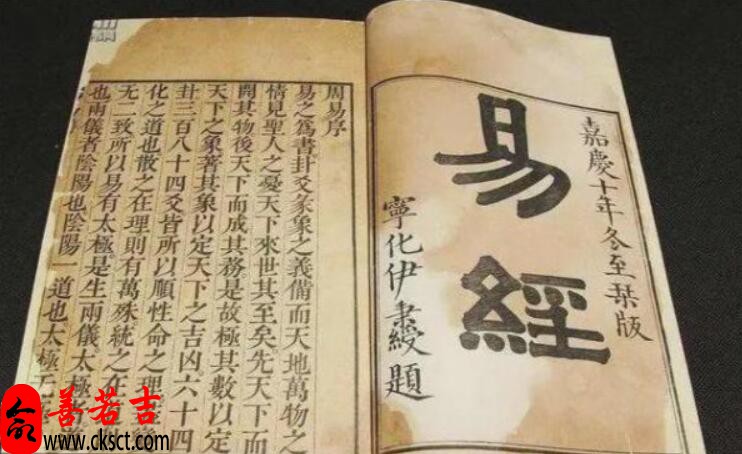 嘉慶十年冬至栞版
易經
寧化伊秉綬題
周易序
易之爲書卦爻彖象之義備而天地萬物之
情見聖人之憂天下來世其至矣先天下而
開其物後天下而成其務是故極其數以定
天下之象著其象以定天下之吉凶六十四
卦三百八十四爻皆所以順性命之理盡變
化之道也散之在理則有萬殊統之在道
無二致所以易有太極是生兩儀太極者道
也兩儀者陰陽也陰陽一道也太極无
善若吉
www.cksct.com